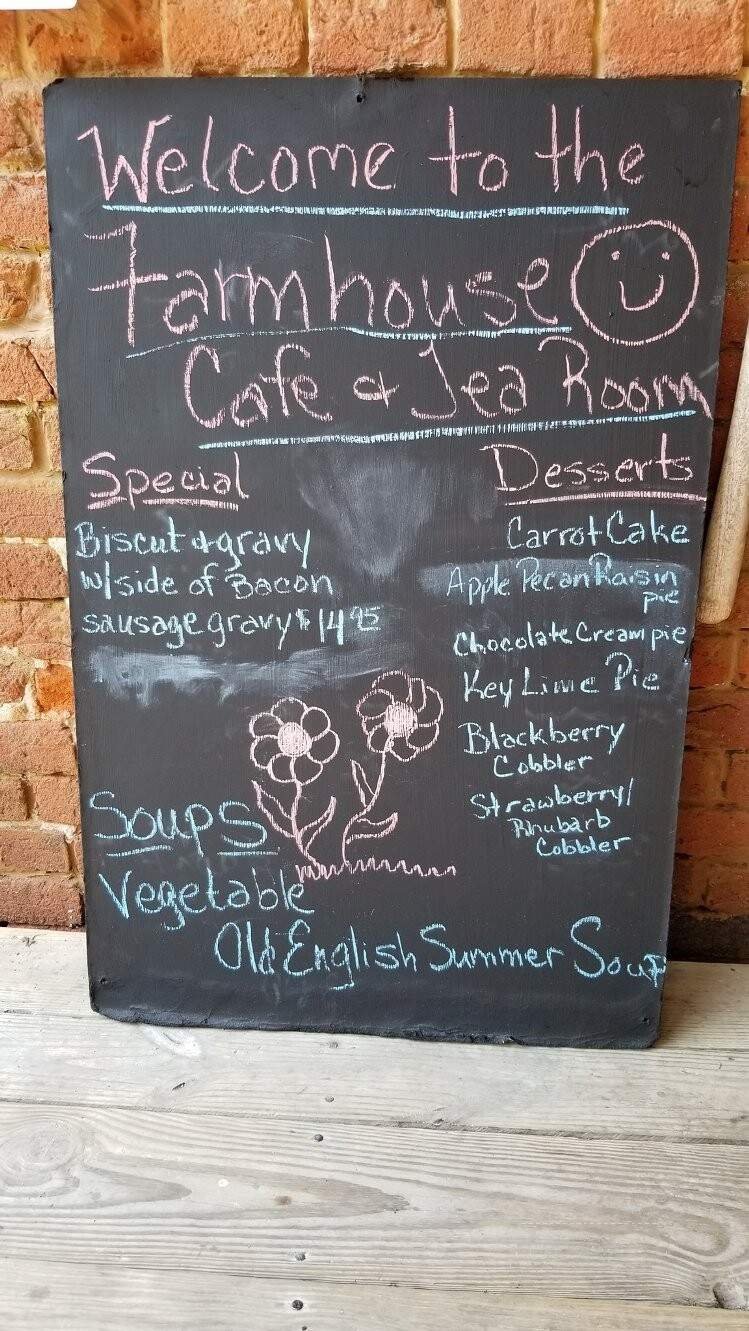 Welcome to the
Farmhouse
Cafe & Tea Room
Special
Biscut & gravy
w/side of Bacon
sausage gravy $14.95
Desserts
Carrot Cake
Apple Pecan Raisin
pie
Chocolate Cream pie
Key Lime Pie
Blackberry
Cobbler
Strawberry/
Rhubarb
Cobbler
Soups
Vegetable
Old English Summer Soup